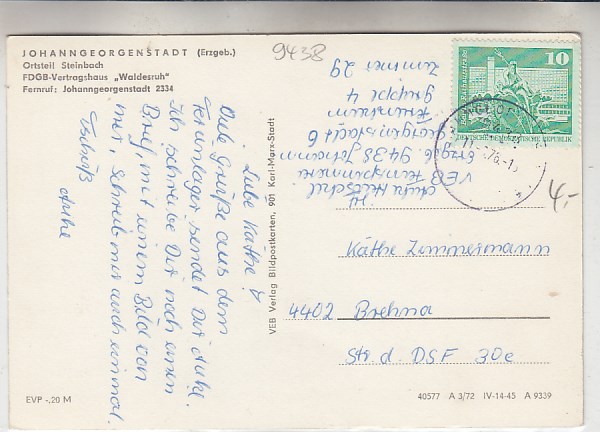 JOHANNGEORGENSTADT (Erzgeb.)
Ortsteil Steinbach
FDGB-Vertragshaus „Waldesruh"
Fernruf: Johanngeorgenstadt 2334
9438
Liebe Käthe!
Viele Grüße aus dem
Ferienlager sendet Dir Anke.
Ich schreibe Dir noch einen
Brief mit einem Bild von
mir. Schreib mir auch einmal.
Tschüß
Anke
VEB Verlag Bildpostkarten, 901 Karl-Marx-Stadt
VEB
Erzgb. 9438 Johann
georgenstadt 6
Gruppe 4
Zimmer 29
10
DEUTSCHE DEMOKRATISCHE REPUBLIK
4,-
Käthe Zimmermann
4402 Brehna
Str. d. DSF 30e
EVP -,20 M
40577 A 3/72 IV-14-45 A 9339